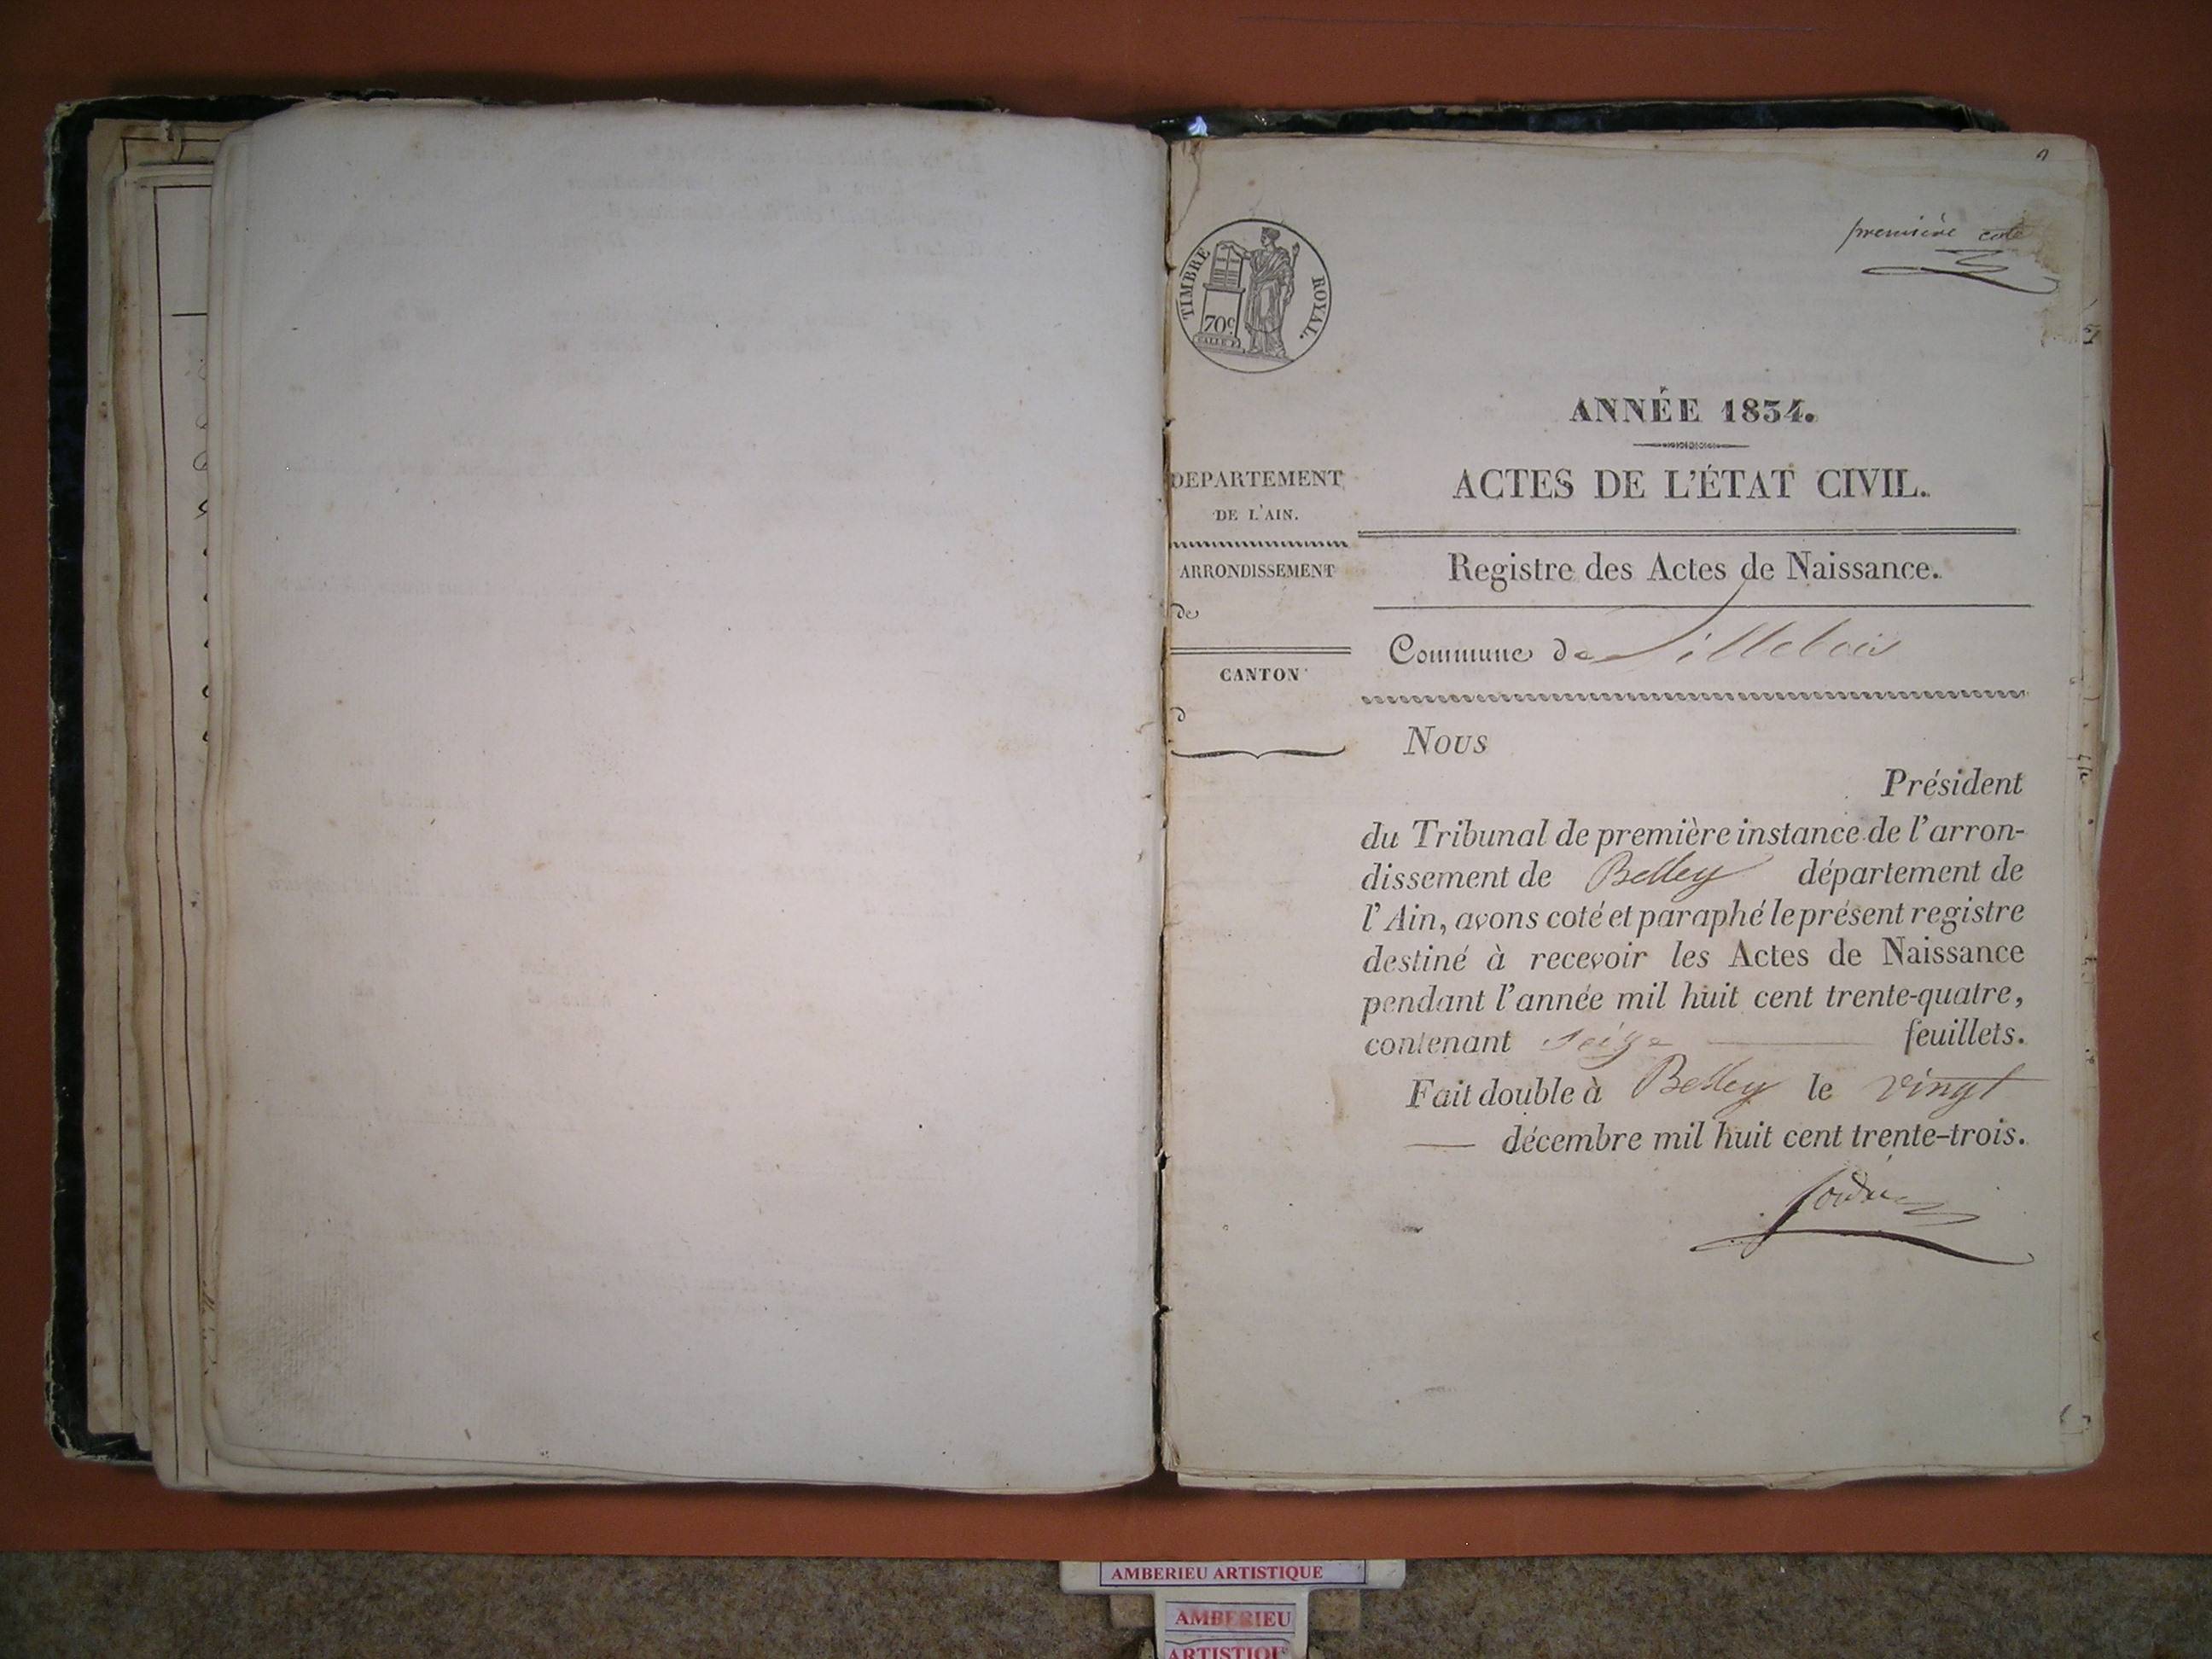 première cote
TIMBRE ROYAL.
70c
ANNÉE 1834.
ACTES DE L'ÉTAT CIVIL.
DEPARTEMENT
DE L'AIN.
ARRONDISSEMENT
de
CANTON
d
Registre des Actes de Naissance.
Commune de Villebois
Nous
Président
du Tribunal de première instance de l'arron-
dissement de Belley département de
l'Ain, avons coté et paraphé le présent registre
destiné à recevoir les Actes de Naissance
pendant l'année mil huit cent trente-quatre,
contenant seize feuillets.
Fait double à Belley le vingt
décembre mil huit cent trente-trois.
AMBERIEU ARTISTIQUE
AMBERIEU
ARTISTIQUE